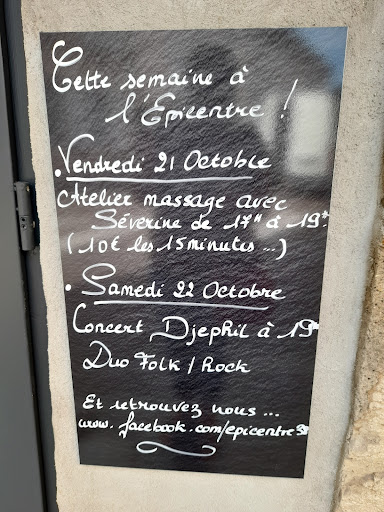 Cette semaine à
l'Epicentre !
. Vendredi 21 Octobre
Atelier massage avec
Séverine de 17H à 19H
(10€ les 15 minutes ...)
. Samedi 22 Octobre
Concert Djephil à 19H
Duo Folk / Rock
Et retrouvez nous ...
www.facebook.com/epicentre